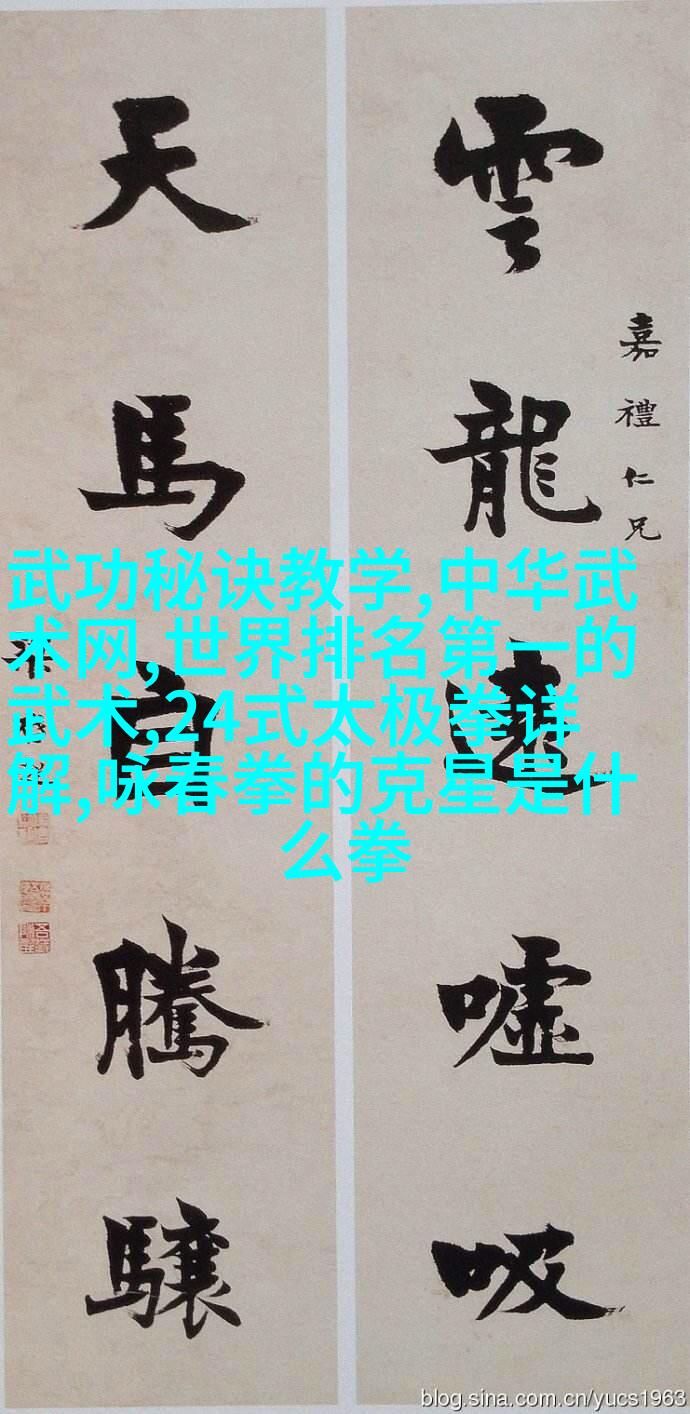 雲龍遠噓吸
嘉禮仁兄
天馬自騰驤
武功秘诀教学,中华武
术网,世界排名第一的
武术,24式太极拳详
解,咏春拳的克星是什
么拳
blog.sina.com.cn/yucs1963